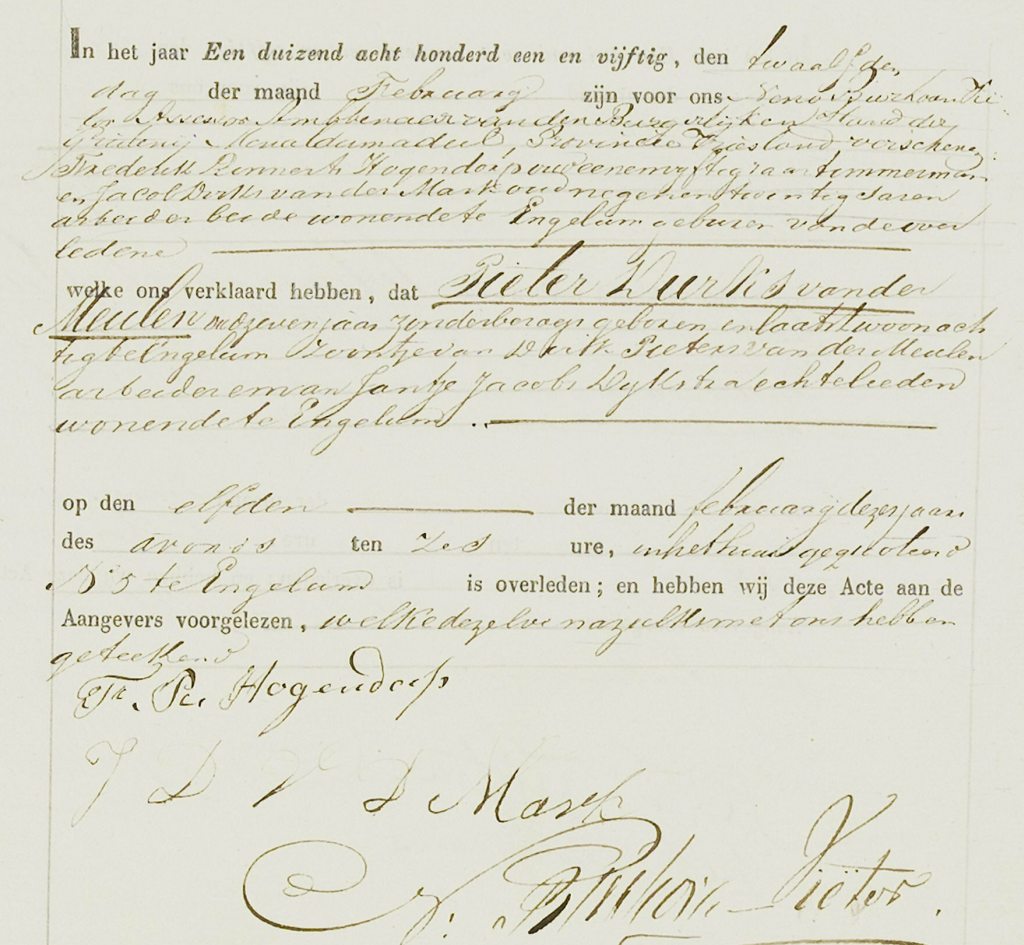 In het jaar Een duizend acht honderd een en vijftig, den twaalfden
dag der maand Februarij zijn voor ons Neno Burhoan Vie
tor Assessor Ambtenaar van den Burgerlijken Stand der
Grietenij Menaldumadeel, Provincie Friesland, verschenen
Frederik Rinnerts Hogendorp oud een en vyftig jaar timmerman
en Jacob Dirks van der Mark oud negen en twintig Jaren
arbeider beide wonende te Engelum geburen van de over
ledene
welke ons verklaard hebben, dat Pieter Durks van der
Meulen oud zeven jaar zonder beroep geboren en laatst woonach
tig be Engelum zoontje van Durk Pieters van der Meulen
arbeider em van Jantje Jacobs Dykstra echtelieden
wonende te Engelum.
op den elfden der maand februarij dezes jaars
des avonds ten zes ure, in het huis gequoteerd
No 5 te Engelum is overleden; en hebben wij deze Acte aan de
Aangevers voorgelezen, welke dezelve na zulks met ons hebben
geteekend
Fr. Ri. Hogendorp
J D V D Mark
N. Viëtor.